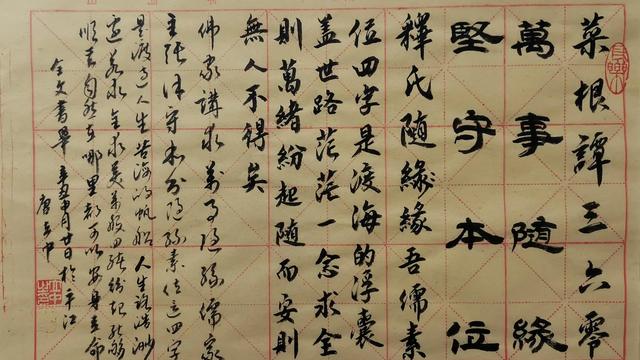 菜根譚三六零
萬事隨緣
堅守本位
釋氏隨緣緣吾儒素
位四字是渡海的浮囊
蓋世路茫茫一念求全
則萬緒紛起隨而安則
無人不得矣
佛家講求萬事隨緣儒家
主張保守本分隨緣素位這四字
是渡過人生苦海的帆船人生路浩渺
若求全求美萬般思緒紛起能夠
順其自然在哪里都可以安身立命
全文書畢辛丑月廿日於平江